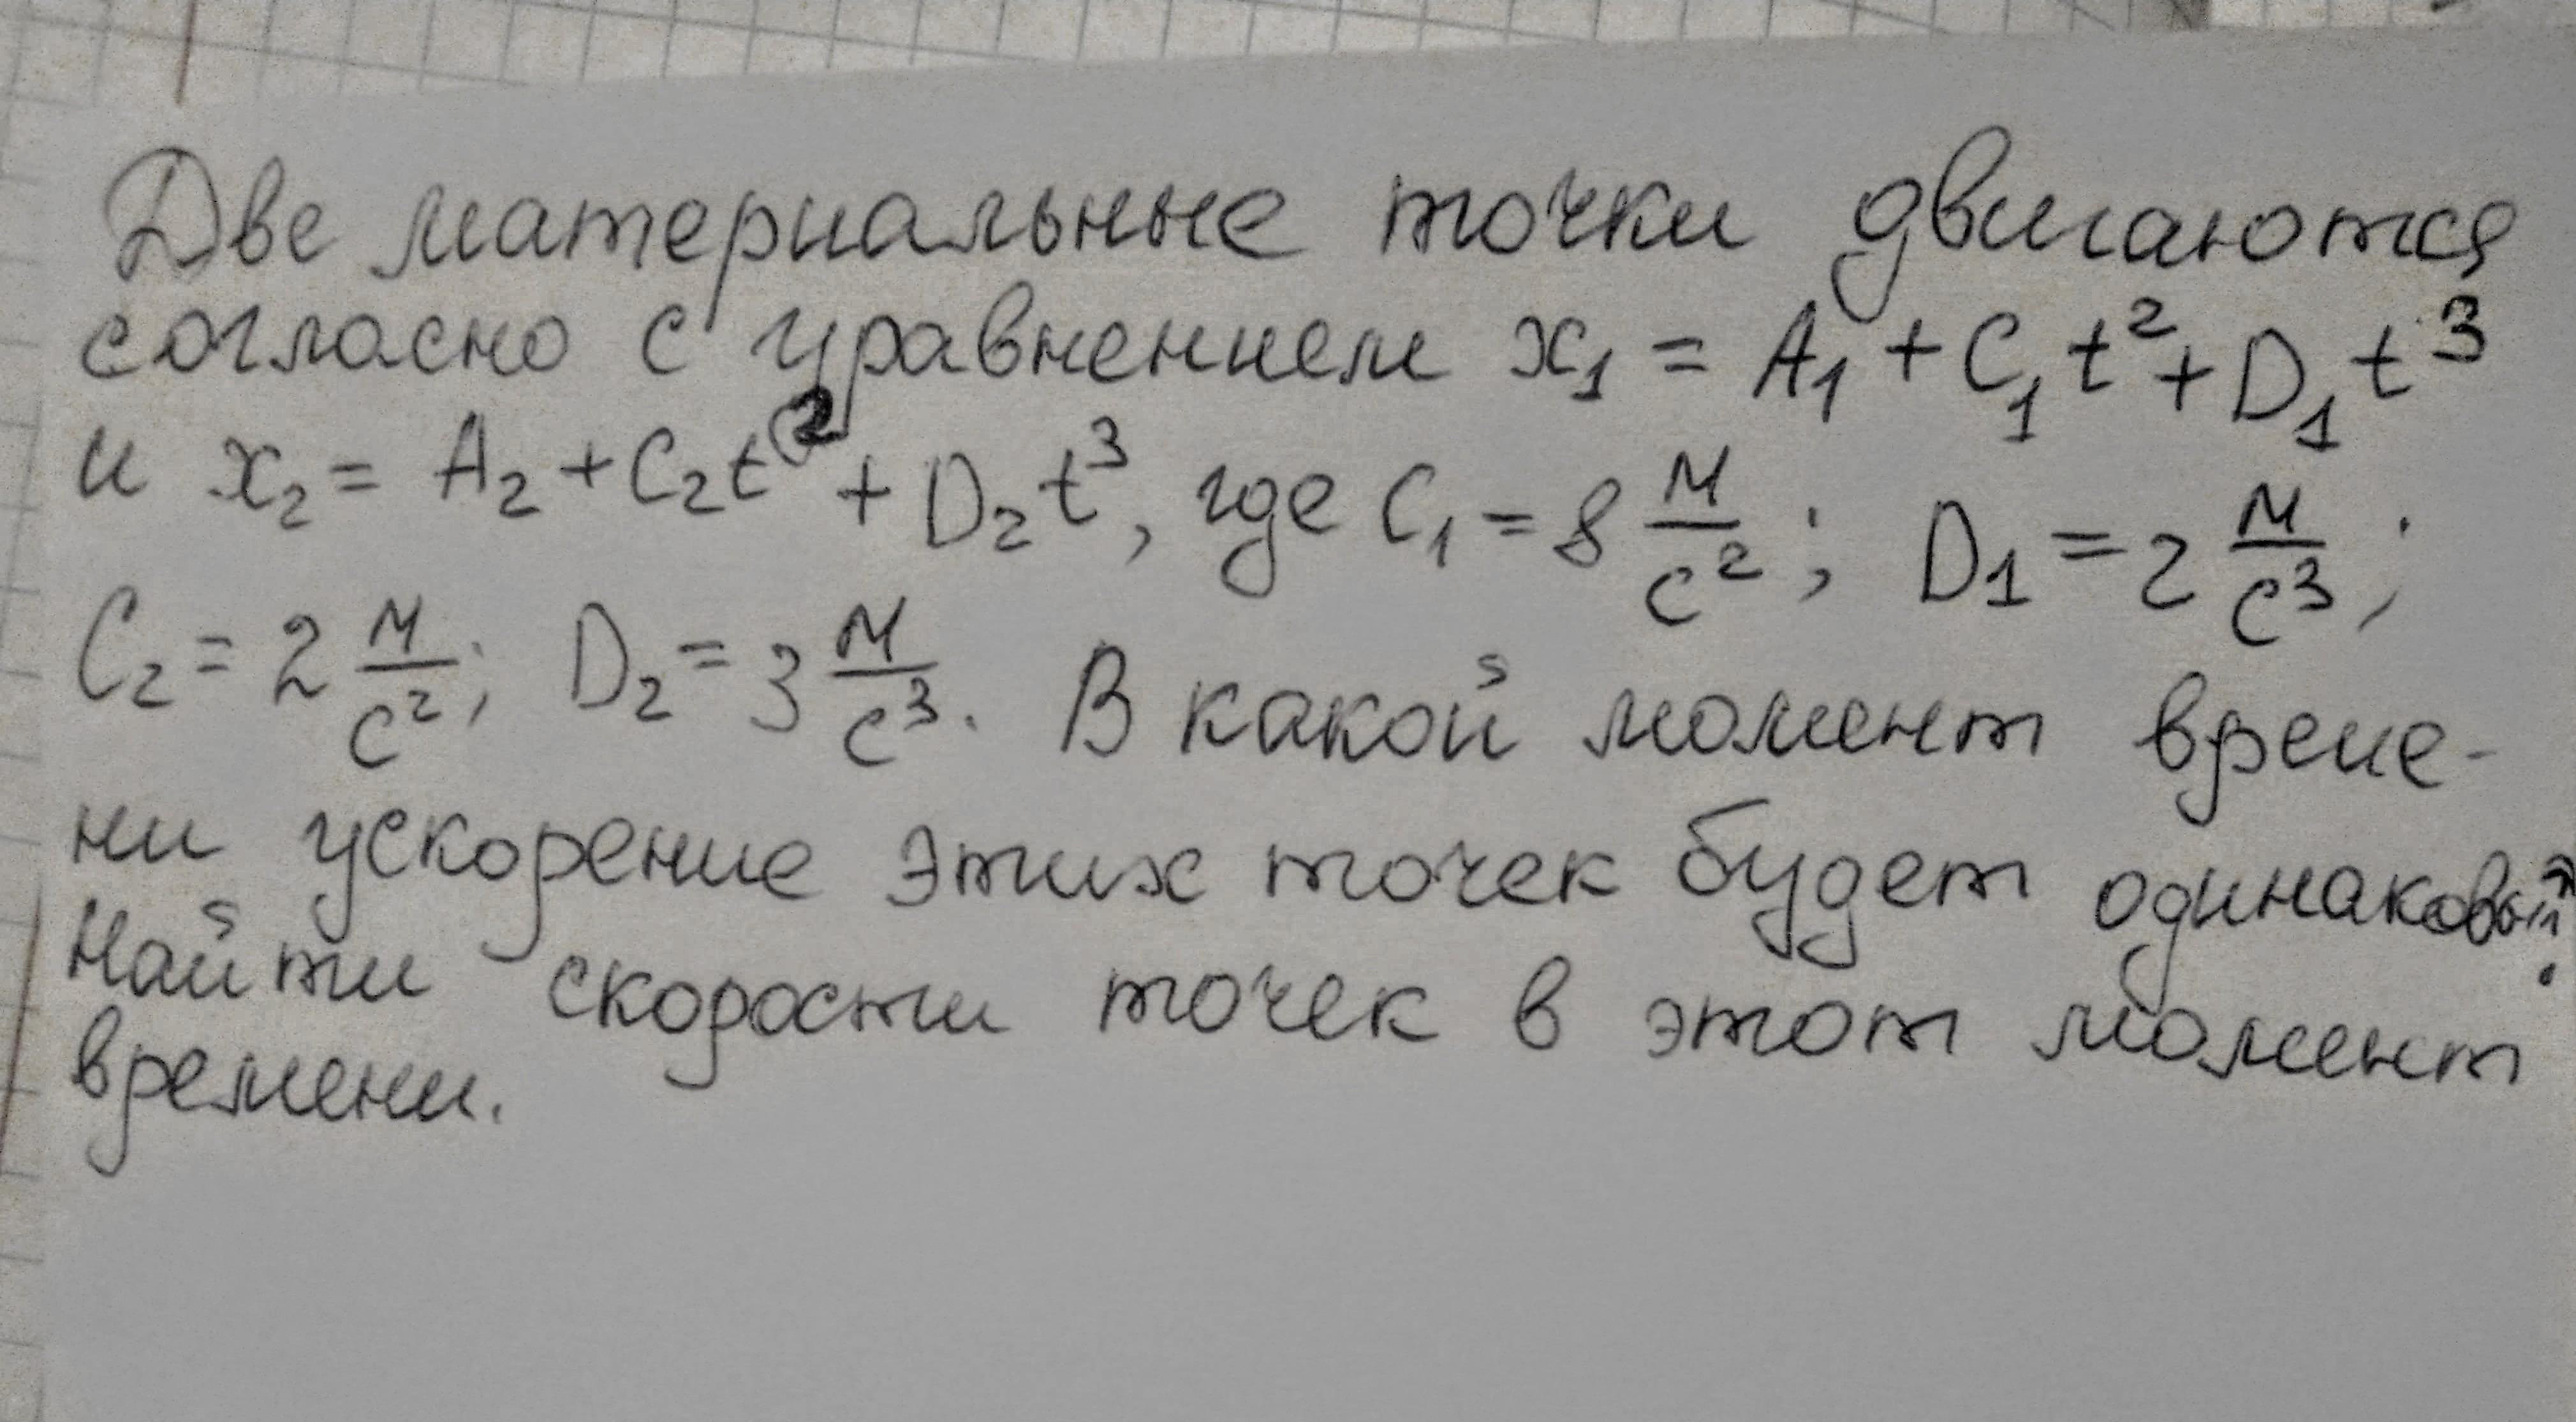 Две материальные точки двигаются
согласно с уравнением x₁ = A₁ + C₁t² + D₁t³
и x₂ = A₂ + C₂t² + D₂t³, где C₁ = 8 м/с²; D₁ = 2 м/с³;
C₂ = 2 м/с²; D₂ = 3 м/с³. В какой момент време-
ни ускорение этих точек будет одинаковый?
Найти скорости точек в этот момент
времени.